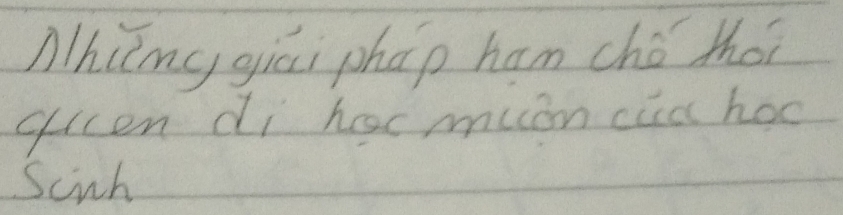 Những giải pháp hạn chế thói
quen đi học muộn của học
sinh